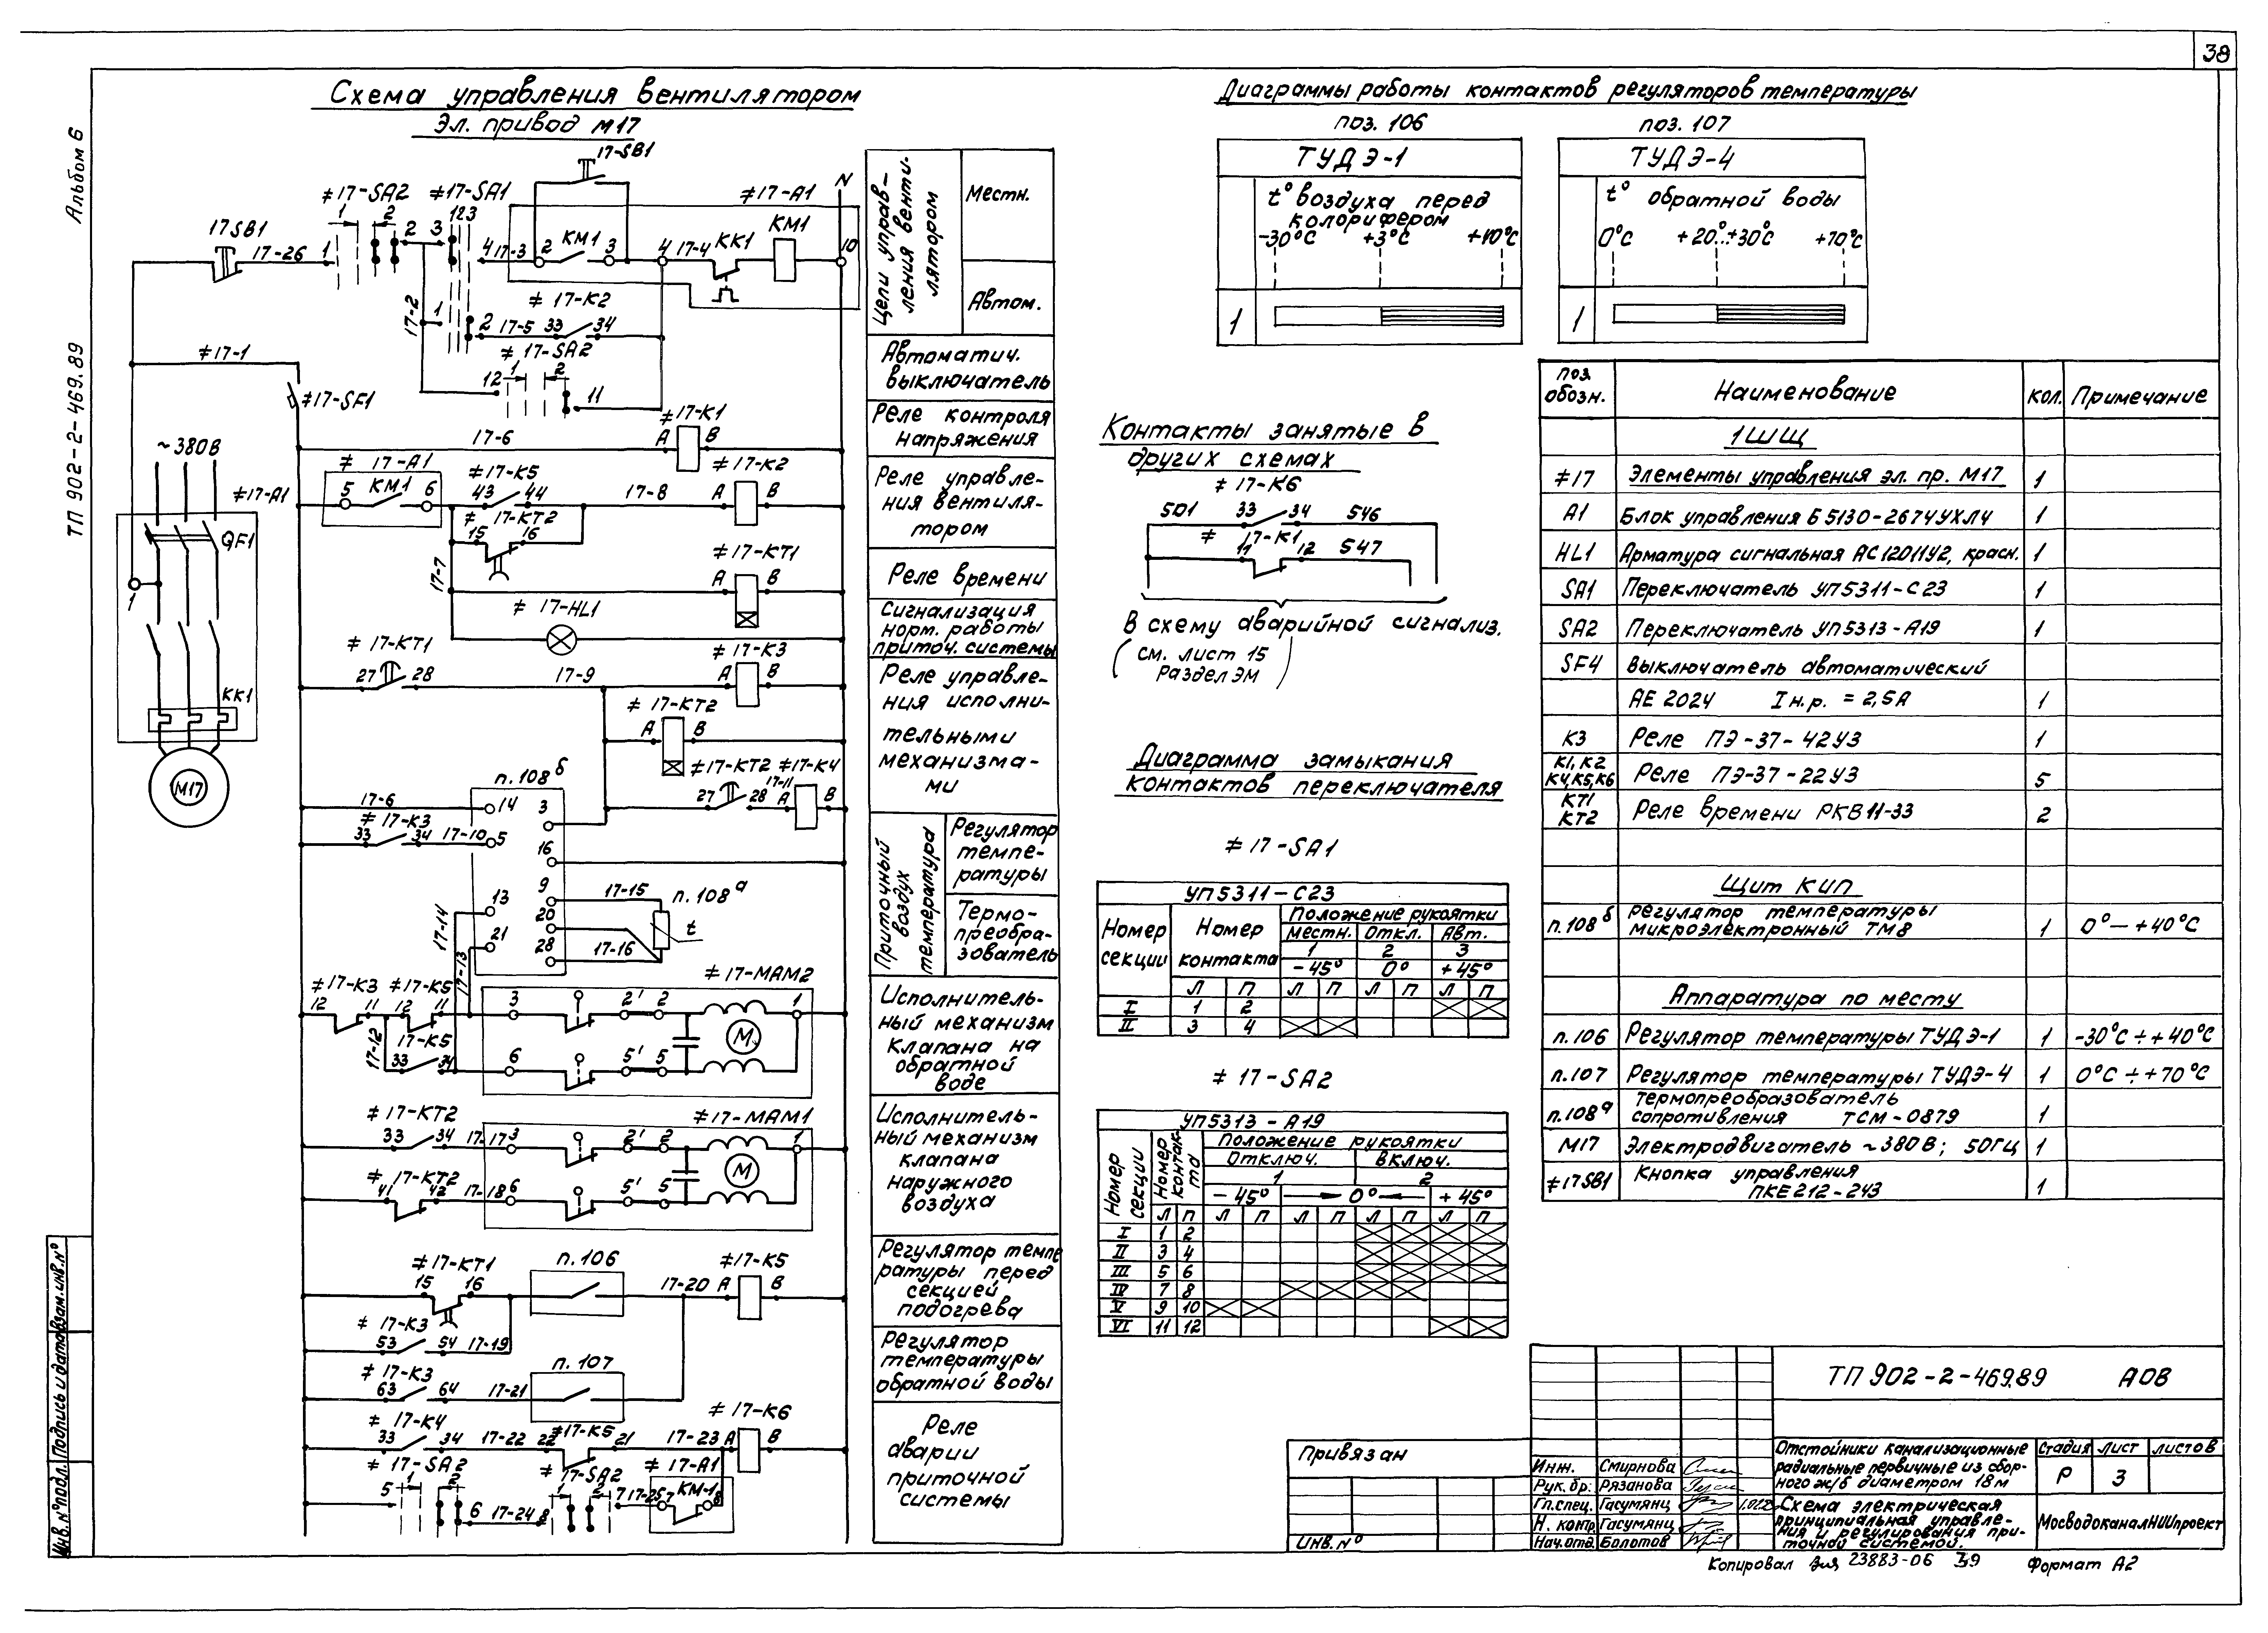 38
Альбом 6
ТП 902-2-469.89
Схема управления вентилятором
Эл. привод М17
17-SB1
≠17-SA2 ≠17-SA1
≠17-A1
N
17SB1
17-26
1 2
1 2 3
1
2 3
4 17-3 2 КМ1 3 4 17-4 КК1 КМ1 10
≠ 17-К2
17-2
1
2 17-5 33 34
≠ 17-SA2
12 1 2 11
≠17-1
≠17-SF1
≠17-К1
17-6
А В
~380В
≠ 17-А1
≠17-К5
≠17-К2
≠17-А1
5 КМ1 6
43 44
17-8
А В
≠ 17-КТ2
15 16
QF1
≠17-КТ1
17-7
А В
1
≠ 17-HL1
≠ 17-КТ1
≠17-К3
27 28
17-9
А В
КК1
≠ 17-КТ2
А В
М17
≠17-КТ2 ≠17-К4
27 28 17-11 А В
п. 108б
17-6
14 3
≠ 17-К3
33 34 17-10 5
16
9 17-15 п. 108а
13 20
17-14
21 28 17-16 t
17-13
≠17-К3 ≠17-К5
≠ 17-МАМ2
12 11 12 11
3 2' 2 1
17-К5
17-12
33 34
6 5' 5
М
≠ 17-КТ2
≠17-МАМ1
33 34 17-17 3 2' 2 1
≠ 17-КТ2
41 42 17-18 6 5' 5
М
≠17-КТ1
п. 106
≠17-К5
15 16
17-20 А В
≠ 17-К3
53 54 17-19
≠ 17-К3
п. 107
63 64 17-21
≠ 17-К4
≠17-К5
≠ 17-К6
33 34 17-22 22 21 17-23 А В
≠ 17-SA2
≠ 17-SA2
≠ 17-А1
5 1 2 6 17-24 8 1 2 7 17-25 7 КМ-1 8
Цепи управ-
ления венти-
лятором
Местн.
Автом.
Автоматич.
выключатель
Реле контроля
напряжения
Реле управле-
ния вентиля-
тором
Реле времени
Сигнализация
норм. работы
приточ. системы
Реле управле-
ния исполни-
тельными
механизма-
ми
Приточный
воздух
температура
Регулятор
темпе-
ратуры
Термо-
преобра-
зователь
Исполнитель-
ный механизм
клапана на
обратной
воде
Исполнитель-
ный механизм
клапана
наружного
воздуха
Регулятор темпе
ратуры перед
секцией
подогрева
Регулятор
температуры
обратной воды
Реле
аварии
приточной
системы
Диаграммы работы контактов регуляторов температуры
поз. 106
ТУДЭ-1
t° воздуха перед
колорифером
-30°С +3°С +40°С
1
поз. 107
ТУДЭ-4
t° обратной воды
0°С +20°..+30°С +70°С
1
Контакты занятые в
других схемах
≠ 17-К6
501 33 34 546
≠ 17-К1
11 12 547
В схему аварийной сигнализ.
( см. лист 15
Раздел ЭМ )
Диаграмма замыкания
контактов переключателя
≠ 17-SA1
УП5311-С23
Номер
секции
Номер
контакта
Положение рукоятки
Местн. Откл. Авт.
1 2 3
-45° 0° +45°
Л П Л П Л П Л П
I 1 2
II 3 4
≠ 17-SA2
УП5313-А19
Номер
секции
Номер
контак-
та
Положение рукоятки
Отключ. Включ.
1 2
-45° 0° +45°
Л П Л П Л П Л П Л П
I 1 2
II 3 4
III 5 6
IV 7 8
V 9 10
VI 11 12
поз.
обозн. Наименование кол. Примечание
1ШЩ
≠17 Элементы управления эл. пр. М17 1
А1 Блок управления Б5130-2674УХЛ4 1
HL1 Арматура сигнальная АС12011У2, красн. 1
SA1 Переключатель УП5311-С23 1
SA2 Переключатель УП5313-А19 1
SF4 Выключатель автоматический
АЕ 2024 Iн.р. = 2,5А 1
К3 Реле ПЭ-37-42У3 1
К1, К2
К4, К5, К6 Реле ПЭ-37-22У3 5
КТ1
КТ2 Реле времени РКВ11-33 2
Щит КИП
п. 108б Регулятор температуры
микроэлектронный ТМ8 1 0°—+40°С
Аппаратура по месту
п. 106 Регулятор температуры ТУДЭ-1 1 -30°С÷+40°С
п. 107 Регулятор температуры ТУДЭ-4 1 0°С÷+70°С
п. 108а Термопреобразователь
сопротивления ТСМ-0879 1
М17 Электродвигатель ~380В; 50Гц 1
≠17SB1 Кнопка управления
ПКЕ212-2У3 1
Привязан
Инв. №
ТП 902-2-469.89 АОВ
Отстойники канализационные
радиальные первичные из сбор-
ного ж/б диаметром 18м
Стадия Лист Листов
Р 3
Инж. Смирнова
Рук. бр. Рязанова
Гл. спец. Гасумянц
Н. контр. Гасумянц
Нач. отд. Болотов
Схема электрическая
принципиальная управле-
ния и регулирования при-
точной системой.
МосводоканалНИИпроект
Копировал 23883-06 39 Формат А2
Инв. № подл. Подпись и дата Взам. инв. №